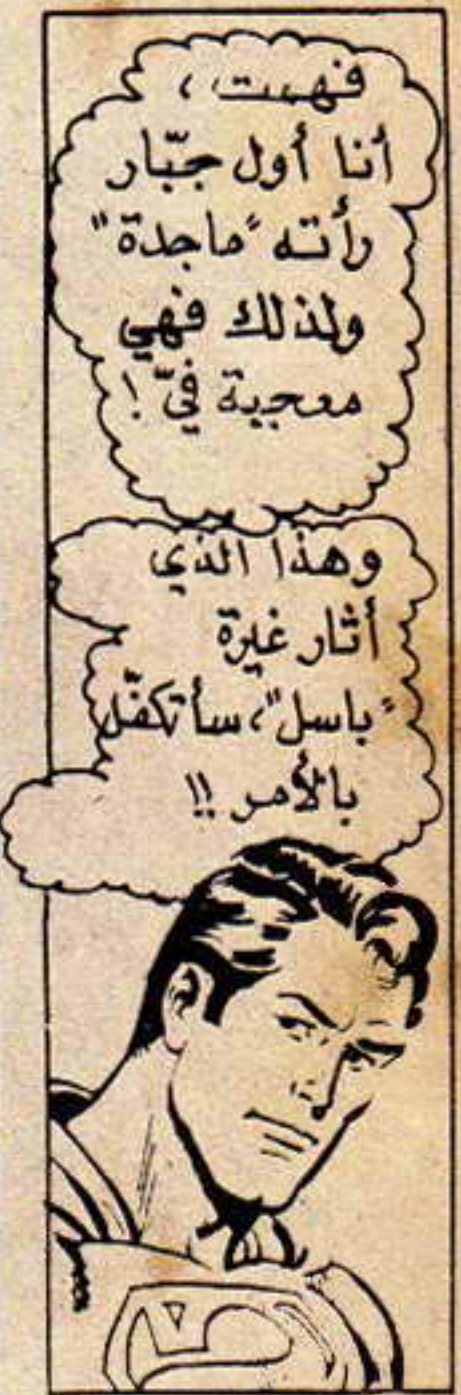 فهمت ،
أنا أول جبّار
رأته "ماجدة"
ولذلك فهي
معجبة فيّ !
وهذا الذي
أثار غيرة
"باسل"، سأتكفّل
بالأمر !!